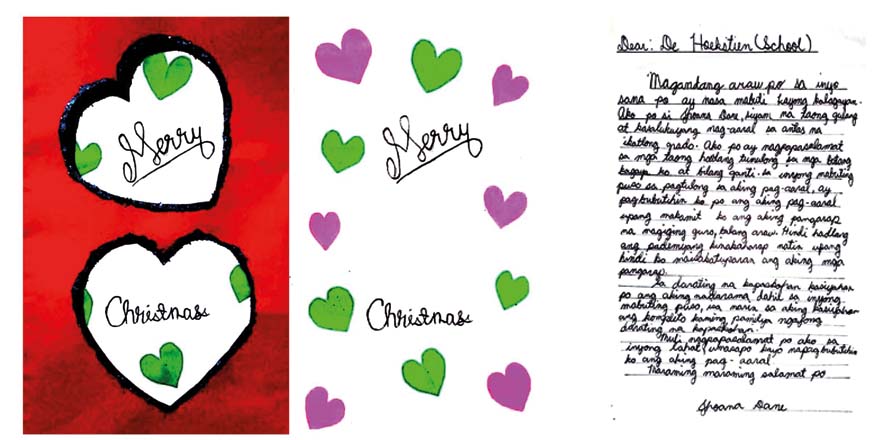 Merry
Christmass
Merry
Christmass
Dear: De Hoekstien (School)
Magandang araw po sa inyo
sana po ay nasa mabuti kayong kalagayan.
Ako po si Jhoana Dane, siyam na taong gulang
at kasalukuyang nag-aaral sa antas na
ikatlong grado. Ako po ay nagpapasalamat
sa mga taong tumulong sa mga
kagaya ko at bilang ganti sa inyong mabuting
puso sa pagtulong sa aking pag-aaral, ay
pagbubutihin ko po ang aking pag-aaral
upang makamit ko ang aking pangarap
na magiging guro, balang araw. Hindi hadlang
ang pademyang kinakaharap natin upang
hindi ko maisakatuparan ang aking mga
pangarap.
Sa darating na kapaskohan kasiyahan
po ang aking nadarama dahil sa inyong
mabuting puso, isa narin sa aking kasiyahan
ang kompleto kaming pamilya ngayong
darating na kapaskohan.
Muli nagpapasalamat po ako sa
inyong lahat, kayo napagbubutihin
ko ang aking pag-aaral
Maraming maraming salamat po
Jhoana Dane